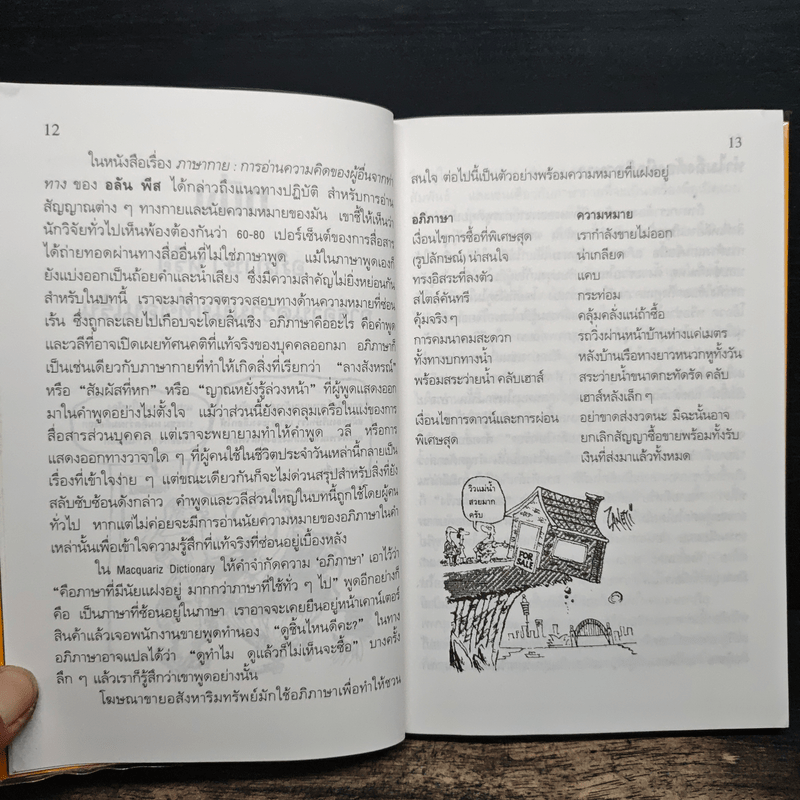 12
ในหนังสือเรื่อง ภาษากาย : การอ่านความคิดของผู้อื่นจากท่า
ทาง ของ อลัน พีส ได้กล่าวถึงแนวทางปฏิบัติ สำหรับการอ่าน
สัญญาณต่าง ๆ ทางกายและนัยความหมายของมัน เขาชี้ให้เห็นว่า
นักวิจัยทั่วไปเห็นพ้องต้องกันว่า 60-80 เปอร์เซ็นต์ของการสื่อสาร
ได้ถ่ายทอดผ่านทางสื่ออื่นที่ไม่ใช่ภาษาพูด แม้ในภาษาพูดเองก็
ยังแบ่งออกเป็นถ้อยคำและน้ำเสียง ซึ่งมีความสำคัญไม่ยิ่งหย่อนกัน
สำหรับในบทนี้ เราจะมาสำรวจตรวจสอบทางด้านความหมายที่ซ่อน
เร้น ซึ่งถูกละเลยไปเกือบจะโดยสิ้นเชิง อภิภาษาคืออะไร คือคำพูด
และวลีที่อาจเปิดเผยทัศนคติที่แท้จริงของบุคคลออกมา อภิภาษาก็
เป็นเช่นเดียวกับภาษากายที่ทำให้เกิดสิ่งที่เรียกว่า "ลางสังหรณ์"
หรือ "สัมผัสที่หก" หรือ "ญาณหยั่งรู้ล่วงหน้า" ที่ผู้พูดแสดงออก
มาในคำพูดอย่างไม่ตั้งใจ แม้ว่าส่วนนี้ยังคงคลุมเครือในแง่ของการ
สื่อสารส่วนบุคคล แต่เราจะพยายามทำให้คำพูด วลี หรือการ
แสดงออกทางวาจาใด ๆ ที่ผู้คนใช้ในชีวิตประจำวันเหล่านี้กลายเป็น
เรื่องที่เข้าใจง่าย ๆ แต่ขณะเดียวกันก็จะไม่ด่วนสรุปสำหรับสิ่งที่ยัง
สลับซับซ้อนดังกล่าว คำพูดและวลีส่วนใหญ่ในบทนี้ถูกใช้โดยผู้คน
ทั่วไป หากแต่ไม่ค่อยจะมีการอ่านนัยความหมายของอภิภาษาในคำ
เหล่านั้นเพื่อเข้าใจความรู้สึกที่แท้จริงที่ซ่อนอยู่เบื้องหลัง
ใน Macquariz Dictionary ให้คำจำกัดความ 'อภิภาษา' เอาไว้ว่า
"คือภาษาที่มีนัยแฝงอยู่ มากกว่าภาษาที่ใช้ทั่ว ๆ ไป" พูดอีกอย่างก็
คือ เป็นภาษาที่ซ้อนอยู่ในภาษา เราอาจจะเคยยืนอยู่หน้าเคาน์เตอร์
สินค้าแล้วเจอพนักงานขายพูดทำนอง "ดูชิ้นไหนดีคะ?" ในทาง
อภิภาษาอาจแปลได้ว่า "ดูทำไม ดูแล้วก็ไม่เห็นจะซื้อ" บางครั้ง
ลึก ๆ แล้วเราก็รู้สึกว่าเขาพูดอย่างนั้น
โฆษณาขายอสังหาริมทรัพย์มักใช้อภิภาษาเพื่อทำให้ชวน
13
สนใจ ต่อไปนี้เป็นตัวอย่างพร้อมความหมายที่แฝงอยู่
อภิภาษา ความหมาย
เงื่อนไขการซื้อที่พิเศษสุด เรากำลังขายไม่ออก
(รูปลักษณ์) น่าสนใจ น่าเกลียด
ทรงอิสระที่ลงตัว แคบ
สไตล์คันทรี กระท่อม
คุ้มจริง ๆ คลุ้มคลั่งแน่ถ้าซื้อ
การคมนาคมสะดวก รถวิ่งผ่านหน้าบ้านห่างแค่เมตร
ทั้งทางบกทางน้ำ หลังบ้านเรือหางยาวหนวกหูทั้งวัน
พร้อมสระว่ายน้ำ คลับเฮาส์ สระว่ายน้ำขนาดกะทัดรัด คลับ
เฮาส์หลังเล็ก ๆ
เงื่อนไขการดาวน์และการผ่อน อย่าขาดส่งงวดนะ มิฉะนั้นอาจ
พิเศษสุด ยกเลิกสัญญาซื้อขายพร้อมทั้งรับ
เงินที่ส่งมาแล้วทั้งหมด
วิวแม่น้ำ
สวยมาก
ครับ
FOR
SALE